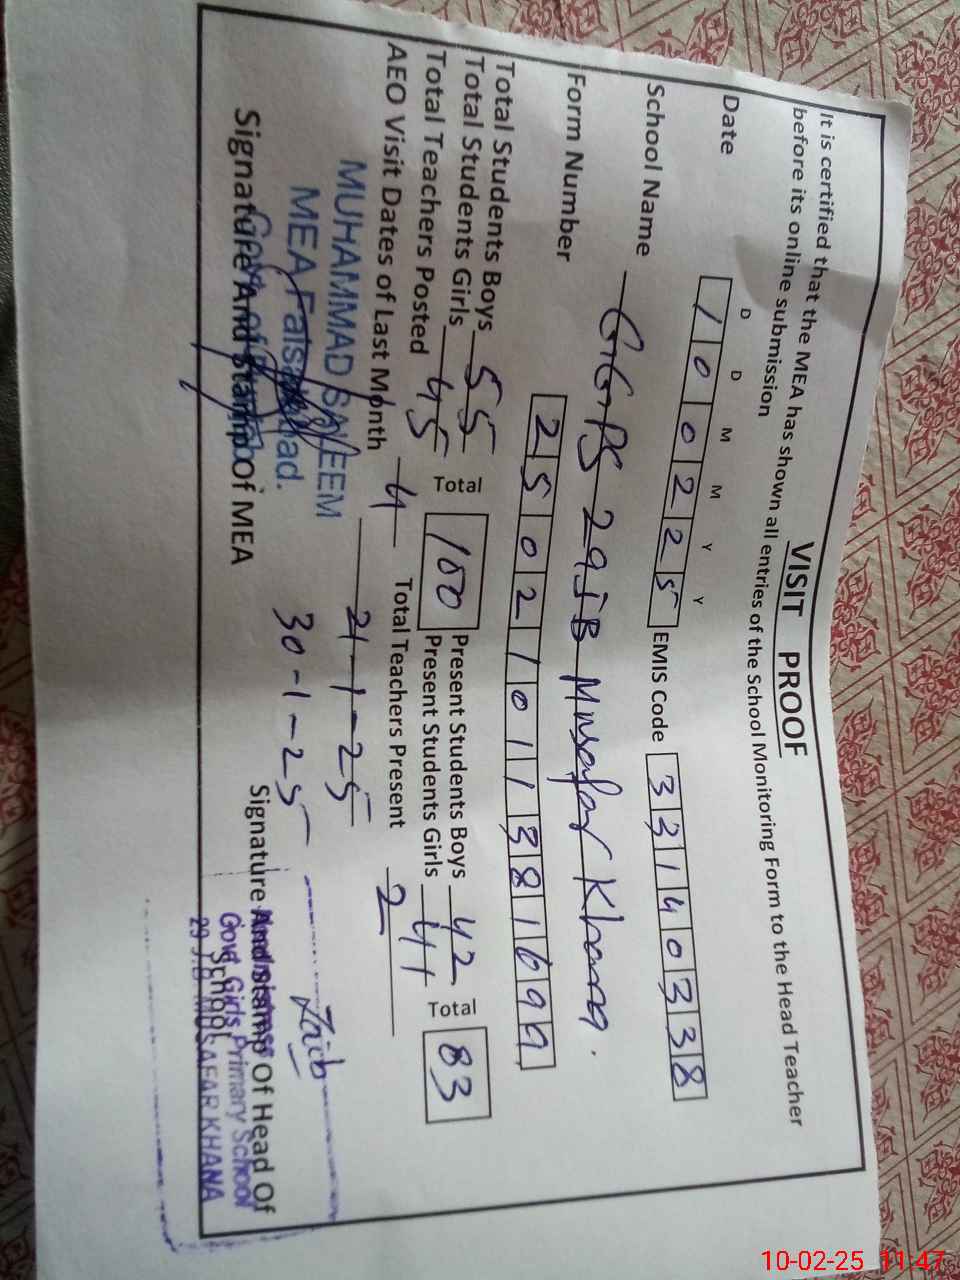 VISIT PROOF
It is certified that the MEA has shown all entries of the School Monitoring Form to the Head Teacher
before its online submission
D D M M Y Y
Date 1 0 0 2 2 5 EMIS Code 3 3 1 4 0 3 3 8
School Name GGPS 29JB Musafar Khana.
Form Number 2 5 0 2 1 0 1 1 3 8 1 6 9 9
Total Students Boys 55 Present Students Boys 42
Total 100 Total 83
Total Students Girls 45 Present Students Girls 41
Total Teachers Posted 4 Total Teachers Present 2
AEO Visit Dates of Last Month 21-1-25
30-1-25
MUHAMMAD SALEEM
MEA Faisalabad.
Signature And Stamp Of MEA
Zaib
Signature And Stamp Of Head Of
School
Govt. Girls Primary School
29 J.B MUSAFAR KHANA
10-02-25 11:47